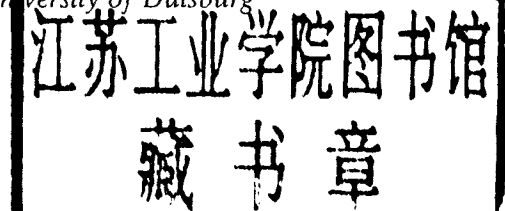 University of Duisburg
江苏工业学院图书馆
藏书章